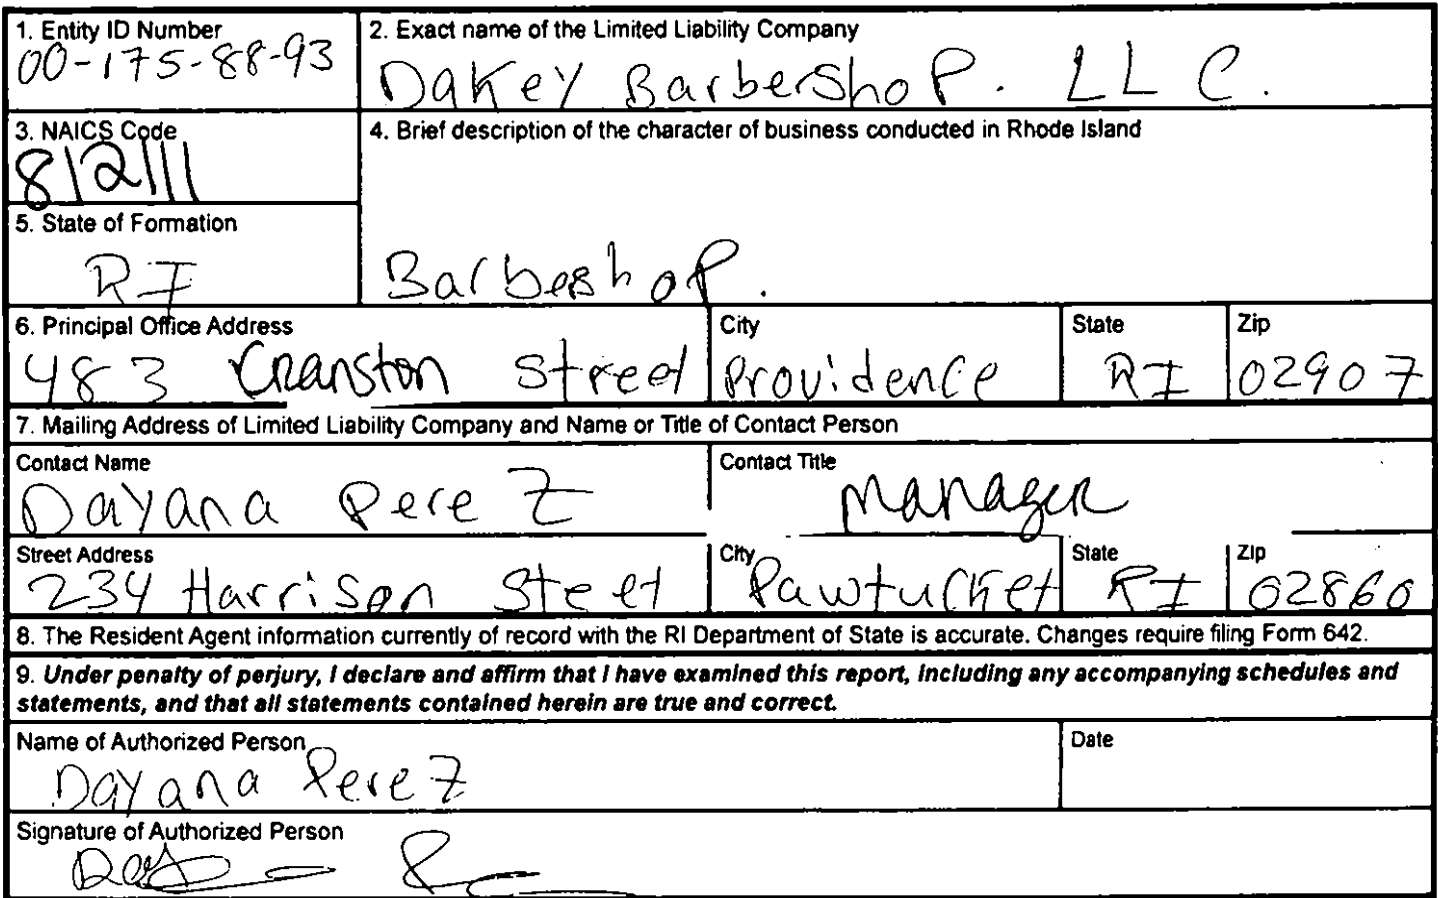 1. Entity ID Number
00-175-88-93
2. Exact name of the Limited Liability Company
Dakey BarberShop. LLC.
3. NAICS Code
812111
4. Brief description of the character of business conducted in Rhode Island
Barbeshop.
5. State of Formation
RI
6. Principal Office Address
483 Cranston Street
City
Providence
State
RI
Zip
02907
7. Mailing Address of Limited Liability Company and Name or Title of Contact Person
Contact Name
Dayana Perez
Contact Title
Manager
Street Address
234 Harrison Steet
City
Pawtucket
State
RI
Zip
02860
8. The Resident Agent information currently of record with the RI Department of State is accurate. Changes require filing Form 642.
9. Under penalty of perjury, I declare and affirm that I have examined this report, including any accompanying schedules and
statements, and that all statements contained herein are true and correct.
Name of Authorized Person
Dayana Perez
Date
Signature of Authorized Person